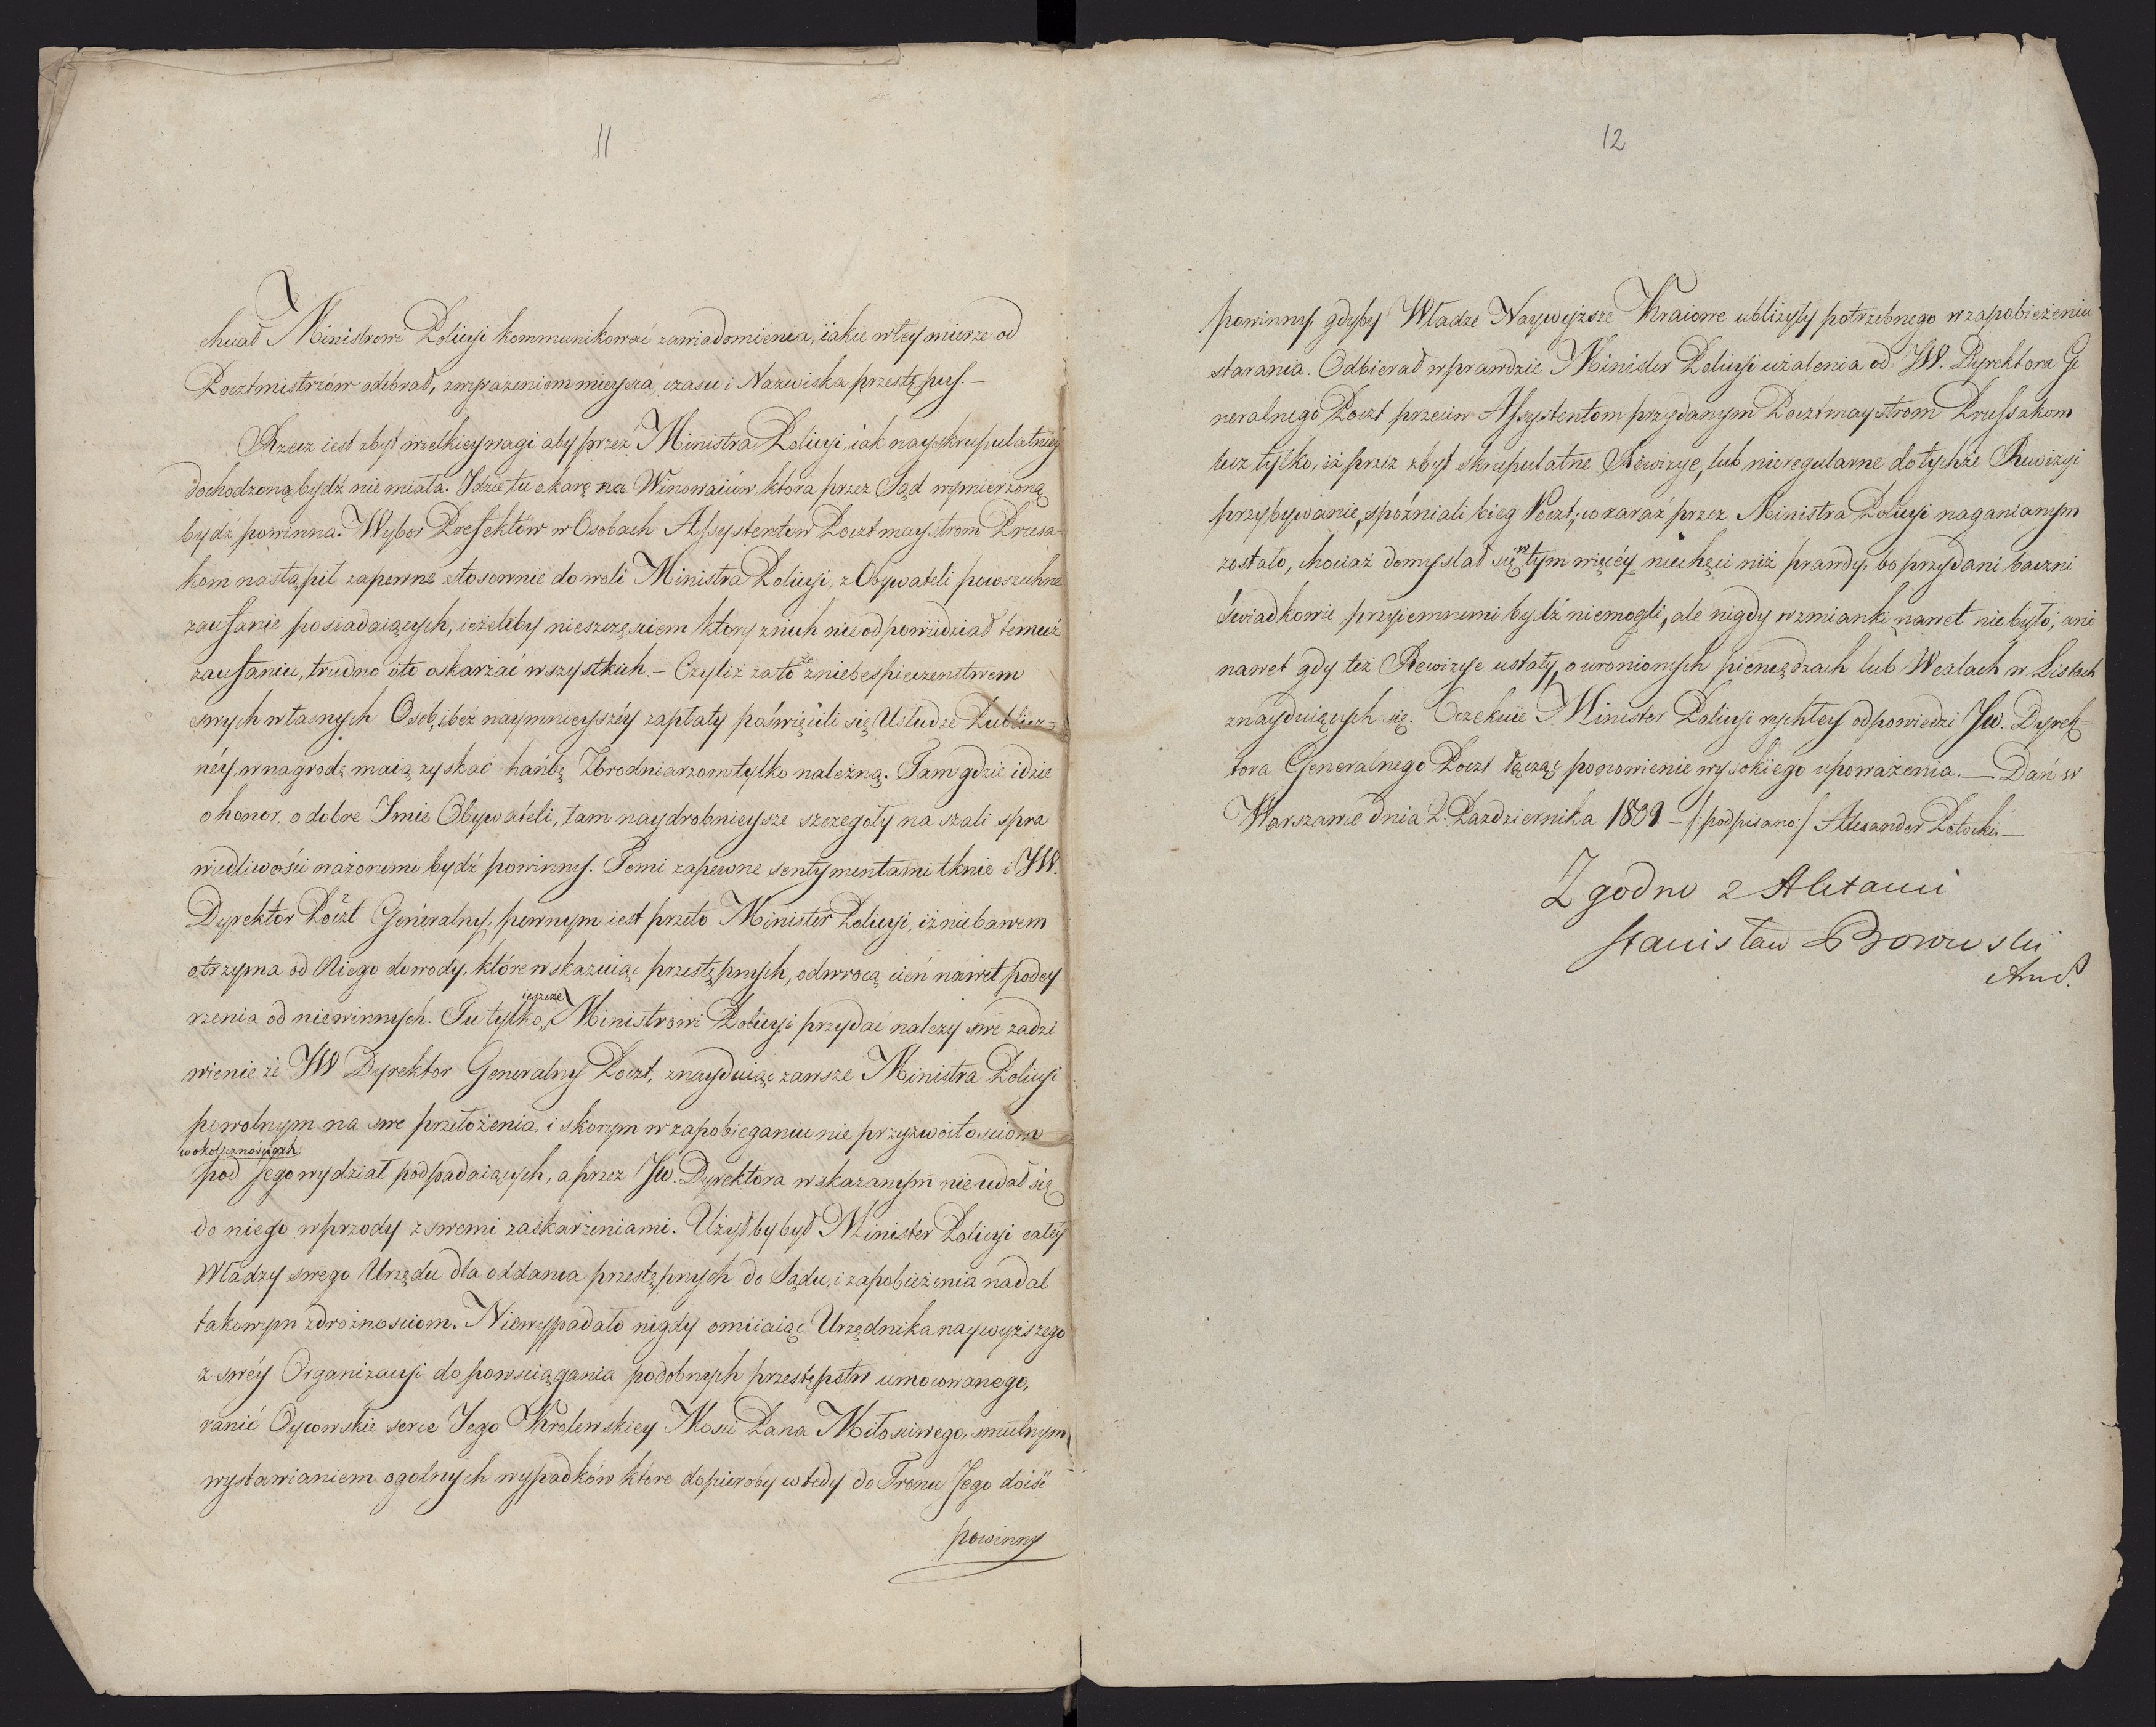 11
chciał Ministrowi Policyi kommunikować zawiadomienia, iakie w tey mierze od
Pocztmistrzów odebrał, z wyrażeniem mieysca, czasu i Nazwiska przestępcy. –
Rzecz iest zbyt wielkiey wagi aby przez Ministra Policyi, iak nayskrupulatniey
dochodzoną bydź nie miała. Idzie tu o karę na Winowaiców, ktora przez Sąd wymierzoną
bydź powinna. Wybor Prefektów w Osobach Assystentow Pocztmaystrom Prusa-
kom nastąpił zapewne stosownie do woli Ministra Policyi, z Obywateli powszechne
zaufanie posiadaiących, ieżeliby nieszczęściem ktory z nich nie odpowiedział temuż
zaufaniu, trudno oto oskarżać wszystkich. – Czyliż za to że z niebespieczenstwem
swych własnych Osób, i bez naymnieyszéy zapłaty poświęcili się Usłudze Publicz-
néy w nagrodę maią zyskać hańbę Zbrodniarzom tylko należną. Tam gdzie idzie
o honor, o dobre Imie Obywateli, tam naydrobnieysze szczegoły na szali spra
wiedliwości ważonemi bydź powinny. Temi zapewne sentymentami tknie i JW.
Dyrektor Poczt Generalny, pewnym iest przeto Minister Policyi, iż niebawem
otrzyma od Niego dowody, które wskazuiąc przestępnych, odwrocą cień nawet podey
rzenia od niewinnych. Tu tylko ieszcze Ministrowi Policyi przydać należy swe zadzi
wienie że JW Dyrektor Generalny Poczt, znayduiąc zawsze Ministra Policyi
powolnym na swe przełożenia, i skorym w zapobieganiu nie przyzwoitosciom
w okolicznościach
pod Jego wydział podpadaiących, a przez JW. Dyrektora wskazanym nie udał się
do niego wprzody z swemi zaskarżeniami. Użył by był Minister Policyi całéy
Władzy swego Urzędu dla oddania przestępnych do Sądu, i zapobieżenia nadal
takowym zdrożnosciom. Niewypadało nigdy omiiaiąc Urzędnika naywyższego
z swéy Organizacyi do powsciągania podobnych przestępstw umocowanego,
ranić Oycowskie serce Jego Krolewskiey Mosci Pana Miłosciwego, smutnym
wystawianiem ogolnych wypadków ktore dopieroby wtedy do Tronu Jego doiść
powinny
12
powinny, gdyby Władze Naywyższe Kraiowe ubliżyły potrzebnego w zapobieżeniu
starania. Odbierał wprawdzie Minister Policyi użalenia od JW. Dyrektora Ge
neralnego Poczt przeciw Assystentom przydanym Pocztmaystrom Prussakom
lecz tylko, iż przez zbyt skrupulatne Rewizye, lub nieregularne do tychże Rewizyi
przybywanie, spóźniali bieg Poczt; co zaraz przez Ministra Policyi naganianym
zostało, chociaż domyslał się w tym więcéy niechęci niż prawdy, bo przydani baczni
świadkowie przyiemnemi bydź niemogli, ale nigdy wzmianki nawet nie było, ani
nawet gdy też Rewizye ustały, o uronionych pieniędzach lub Wexlach w Listach
znayduiących się. Oczekuie Minister Policyi rychłey odpowiedzi JW. Dyrek-
tora Generalnego Poczt łącząc ponowienie wysokiego upoważenia. – Dań w
Warszawie dnia 2. Pazdziernika 1809 – /: podpisano :/ Alexander Potocki. –
Zgodno z Aktami
Stanisław